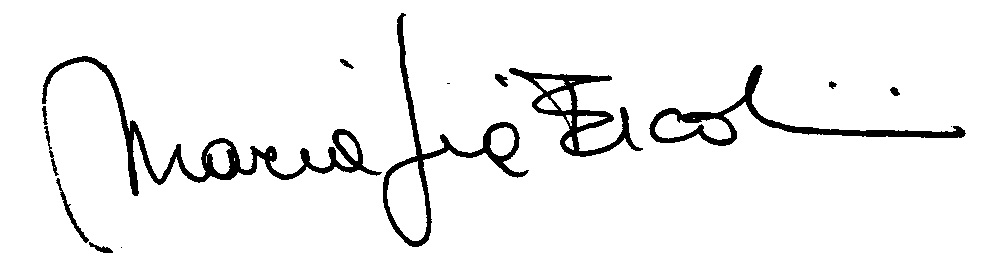 Maria Pia Ercolini